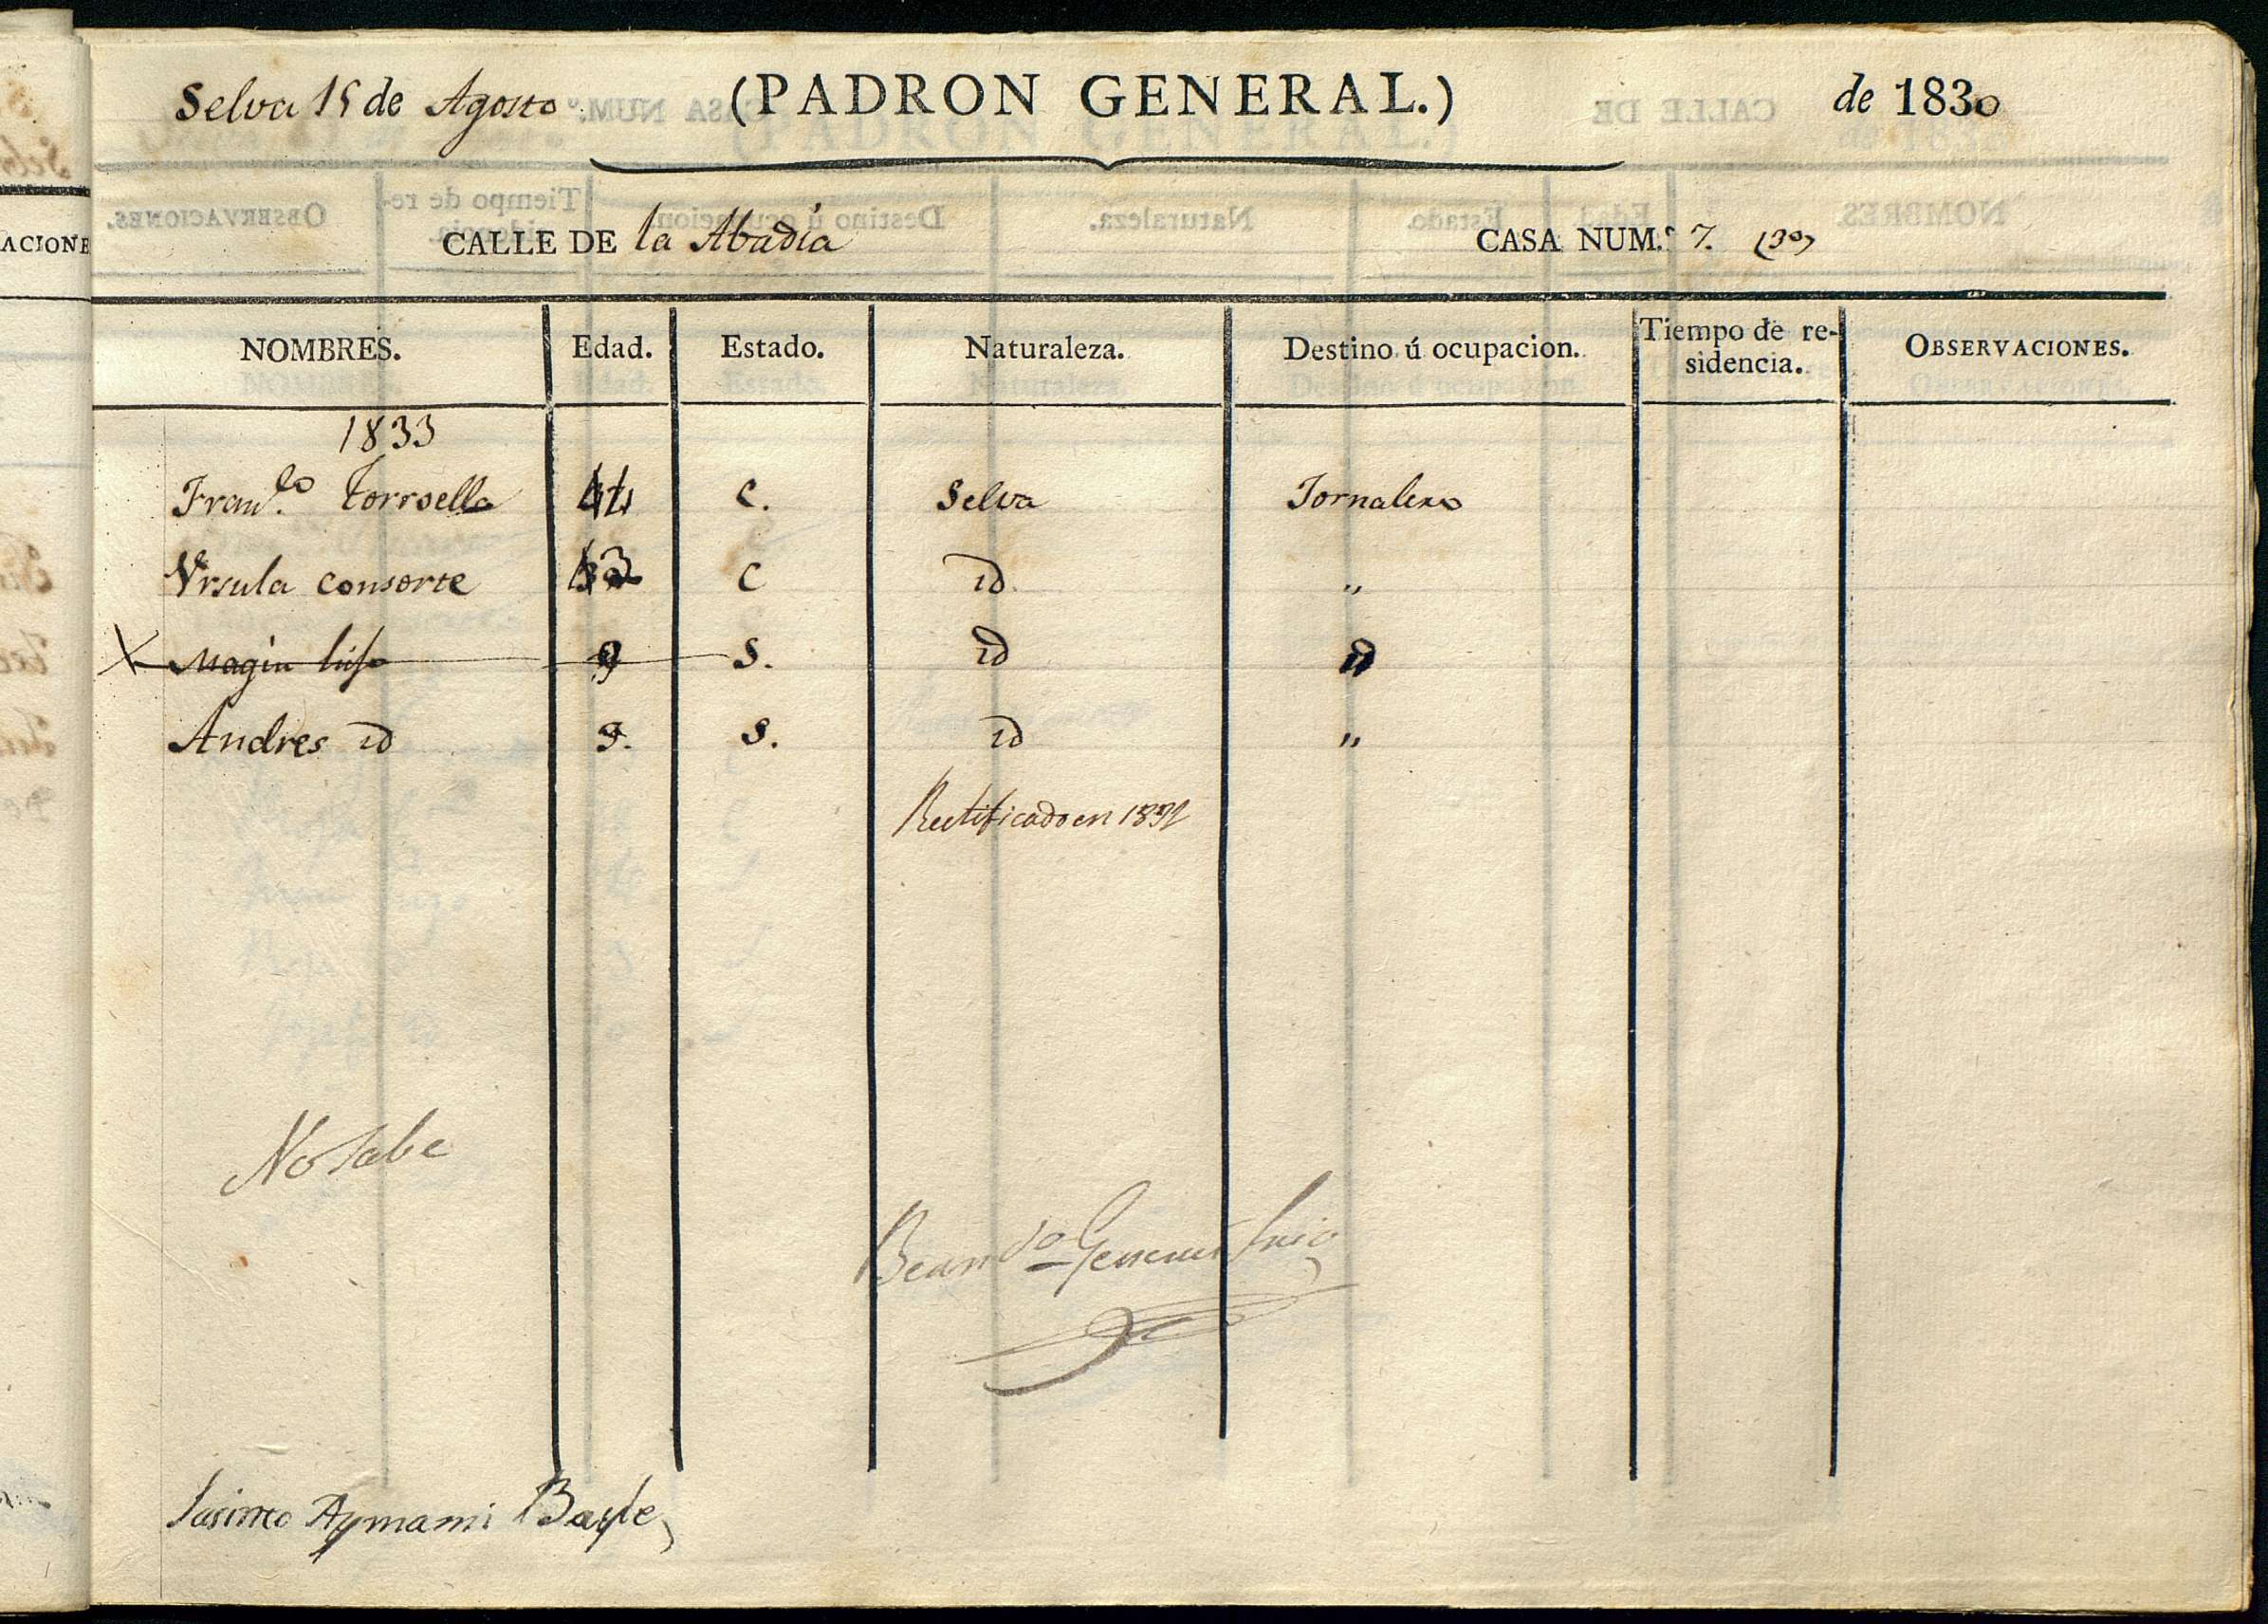 Selva 15 de Agosto (PADRON GENERAL.) de 1830
CALLE DE la Abadía CASA NUM.º 7.
NOMBRES. Edad. Estado. Naturaleza. Destino ú ocupacion. Tiempo de re-sidencia. OBSERVACIONES.
1833
Fran.co Torroella C. Selva Jornalero
Vrsula consorte C id "
Magin hijo 9 S. id
Andres id S. id "
Rectificado en 1832
No Sabe
Aymami Bayle